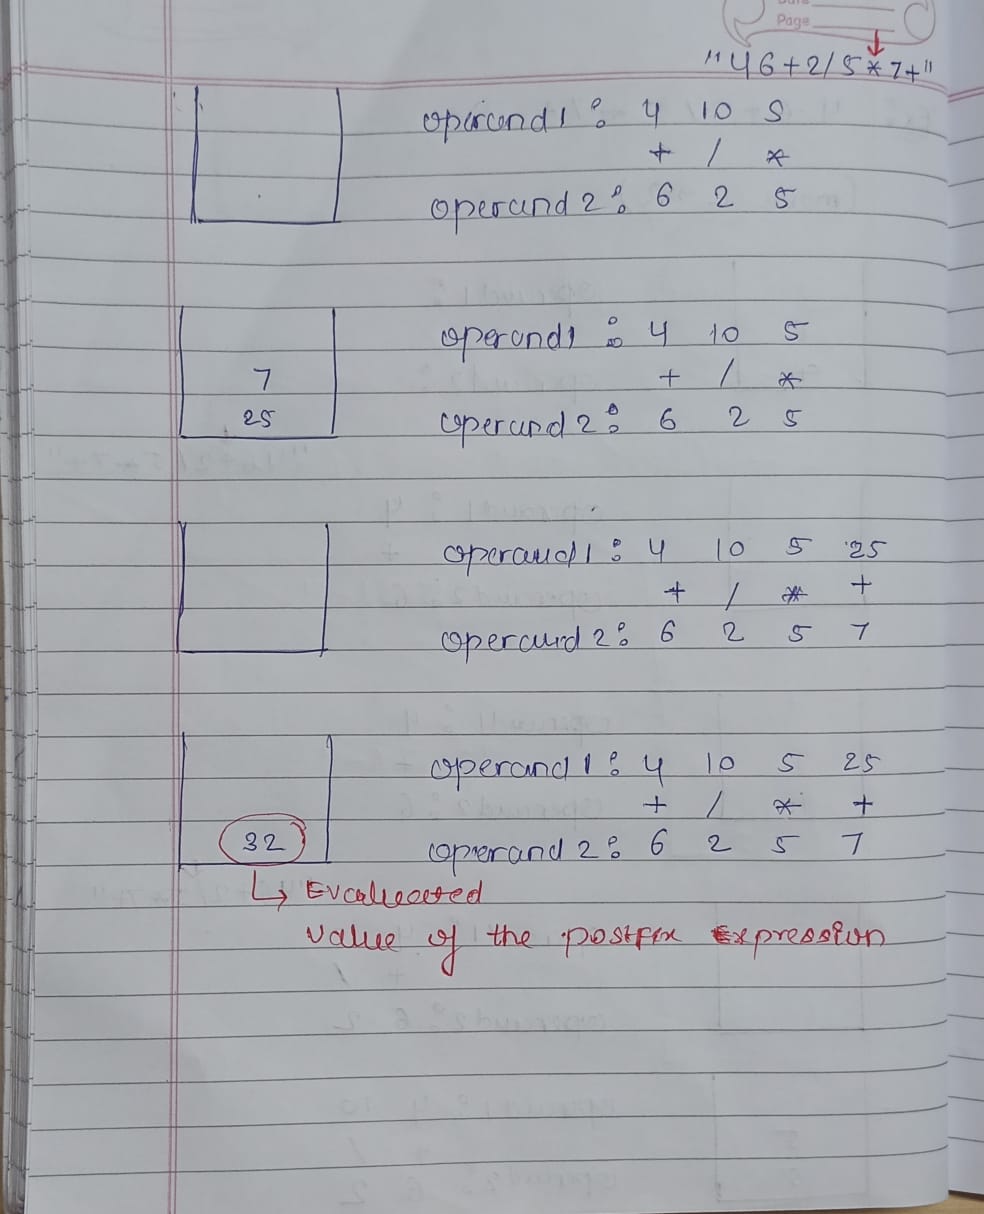 Page
"46+2/5*7+"
operand1 : 4 10 5
+ / *
operand 2 : 6 2 5
operand1 : 4 10 5
7
+ / *
25
operand 2 : 6 2 5
operand1 : 4 10 5 25
+ / * +
operand 2 : 6 2 5 7
operand 1 : 4 10 5 25
+ / * +
32
operand 2 : 6 2 5 7
↳ Evaluated
value of the postfix Expression